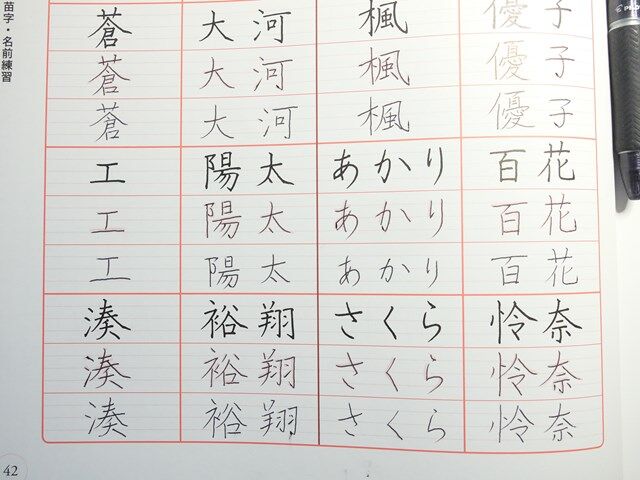 苗字・名前練習
蒼 大河 楓 優子
蒼 大河 楓 優子
蒼 大河 楓 優子
工 陽太 あかり 百花
工 陽太 あかり 百花
工 陽太 あかり 百花
湊 裕翔 さくら 怜奈
湊 裕翔 さくら 怜奈
湊 裕翔 さくら 怜奈
42